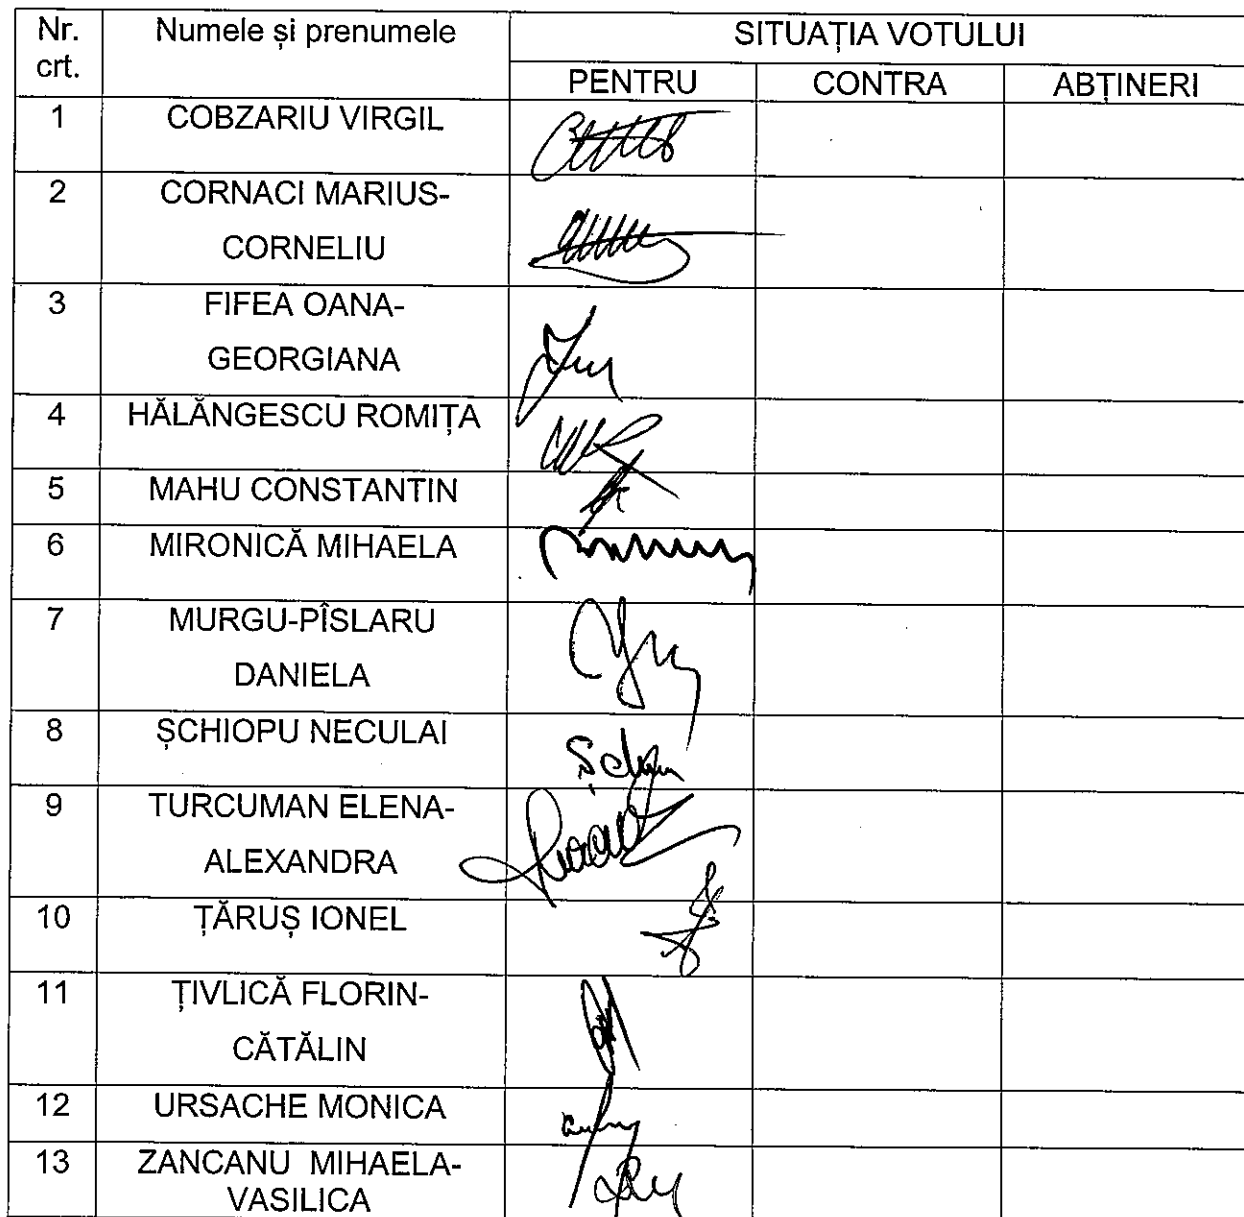 Nr. crt. Numele și prenumele SITUAȚIA VOTULUI
PENTRU CONTRA ABȚINERI
1 COBZARIU VIRGIL
2 CORNACI MARIUS-
CORNELIU
3 FIFEA OANA-
GEORGIANA
4 HĂLĂNGESCU ROMIȚA
5 MAHU CONSTANTIN
6 MIRONICĂ MIHAELA
7 MURGU-PÎSLARU
DANIELA
8 ȘCHIOPU NECULAI
9 TURCUMAN ELENA-
ALEXANDRA
10 ȚĂRUȘ IONEL
11 ȚIVLICĂ FLORIN-
CĂTĂLIN
12 URSACHE MONICA
13 ZANCANU MIHAELA-
VASILICA